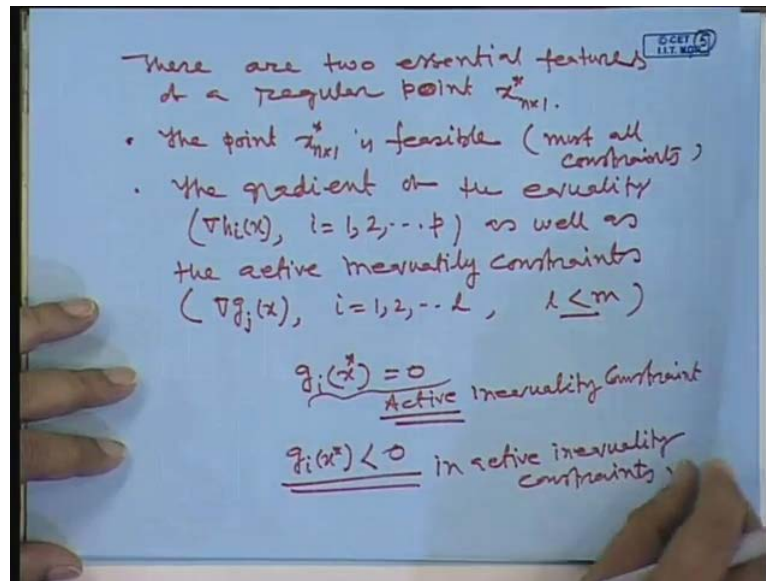 There are two essential features
of a regular point x*ₙₓ₁.
© CET
I.I.T. KGP
5
• The point x*ₙₓ₁ is feasible (must all
constraints)
• The gradient of the equality
(∇hᵢ(x), i = 1, 2, ... p) as well as
the active inequality constraints
(∇gⱼ(x), i = 1, 2, .. l, l ≤ m)
gᵢ(x*) = 0
Active inequality Constraint
gᵢ(x*) < 0 in active inequality
constraints